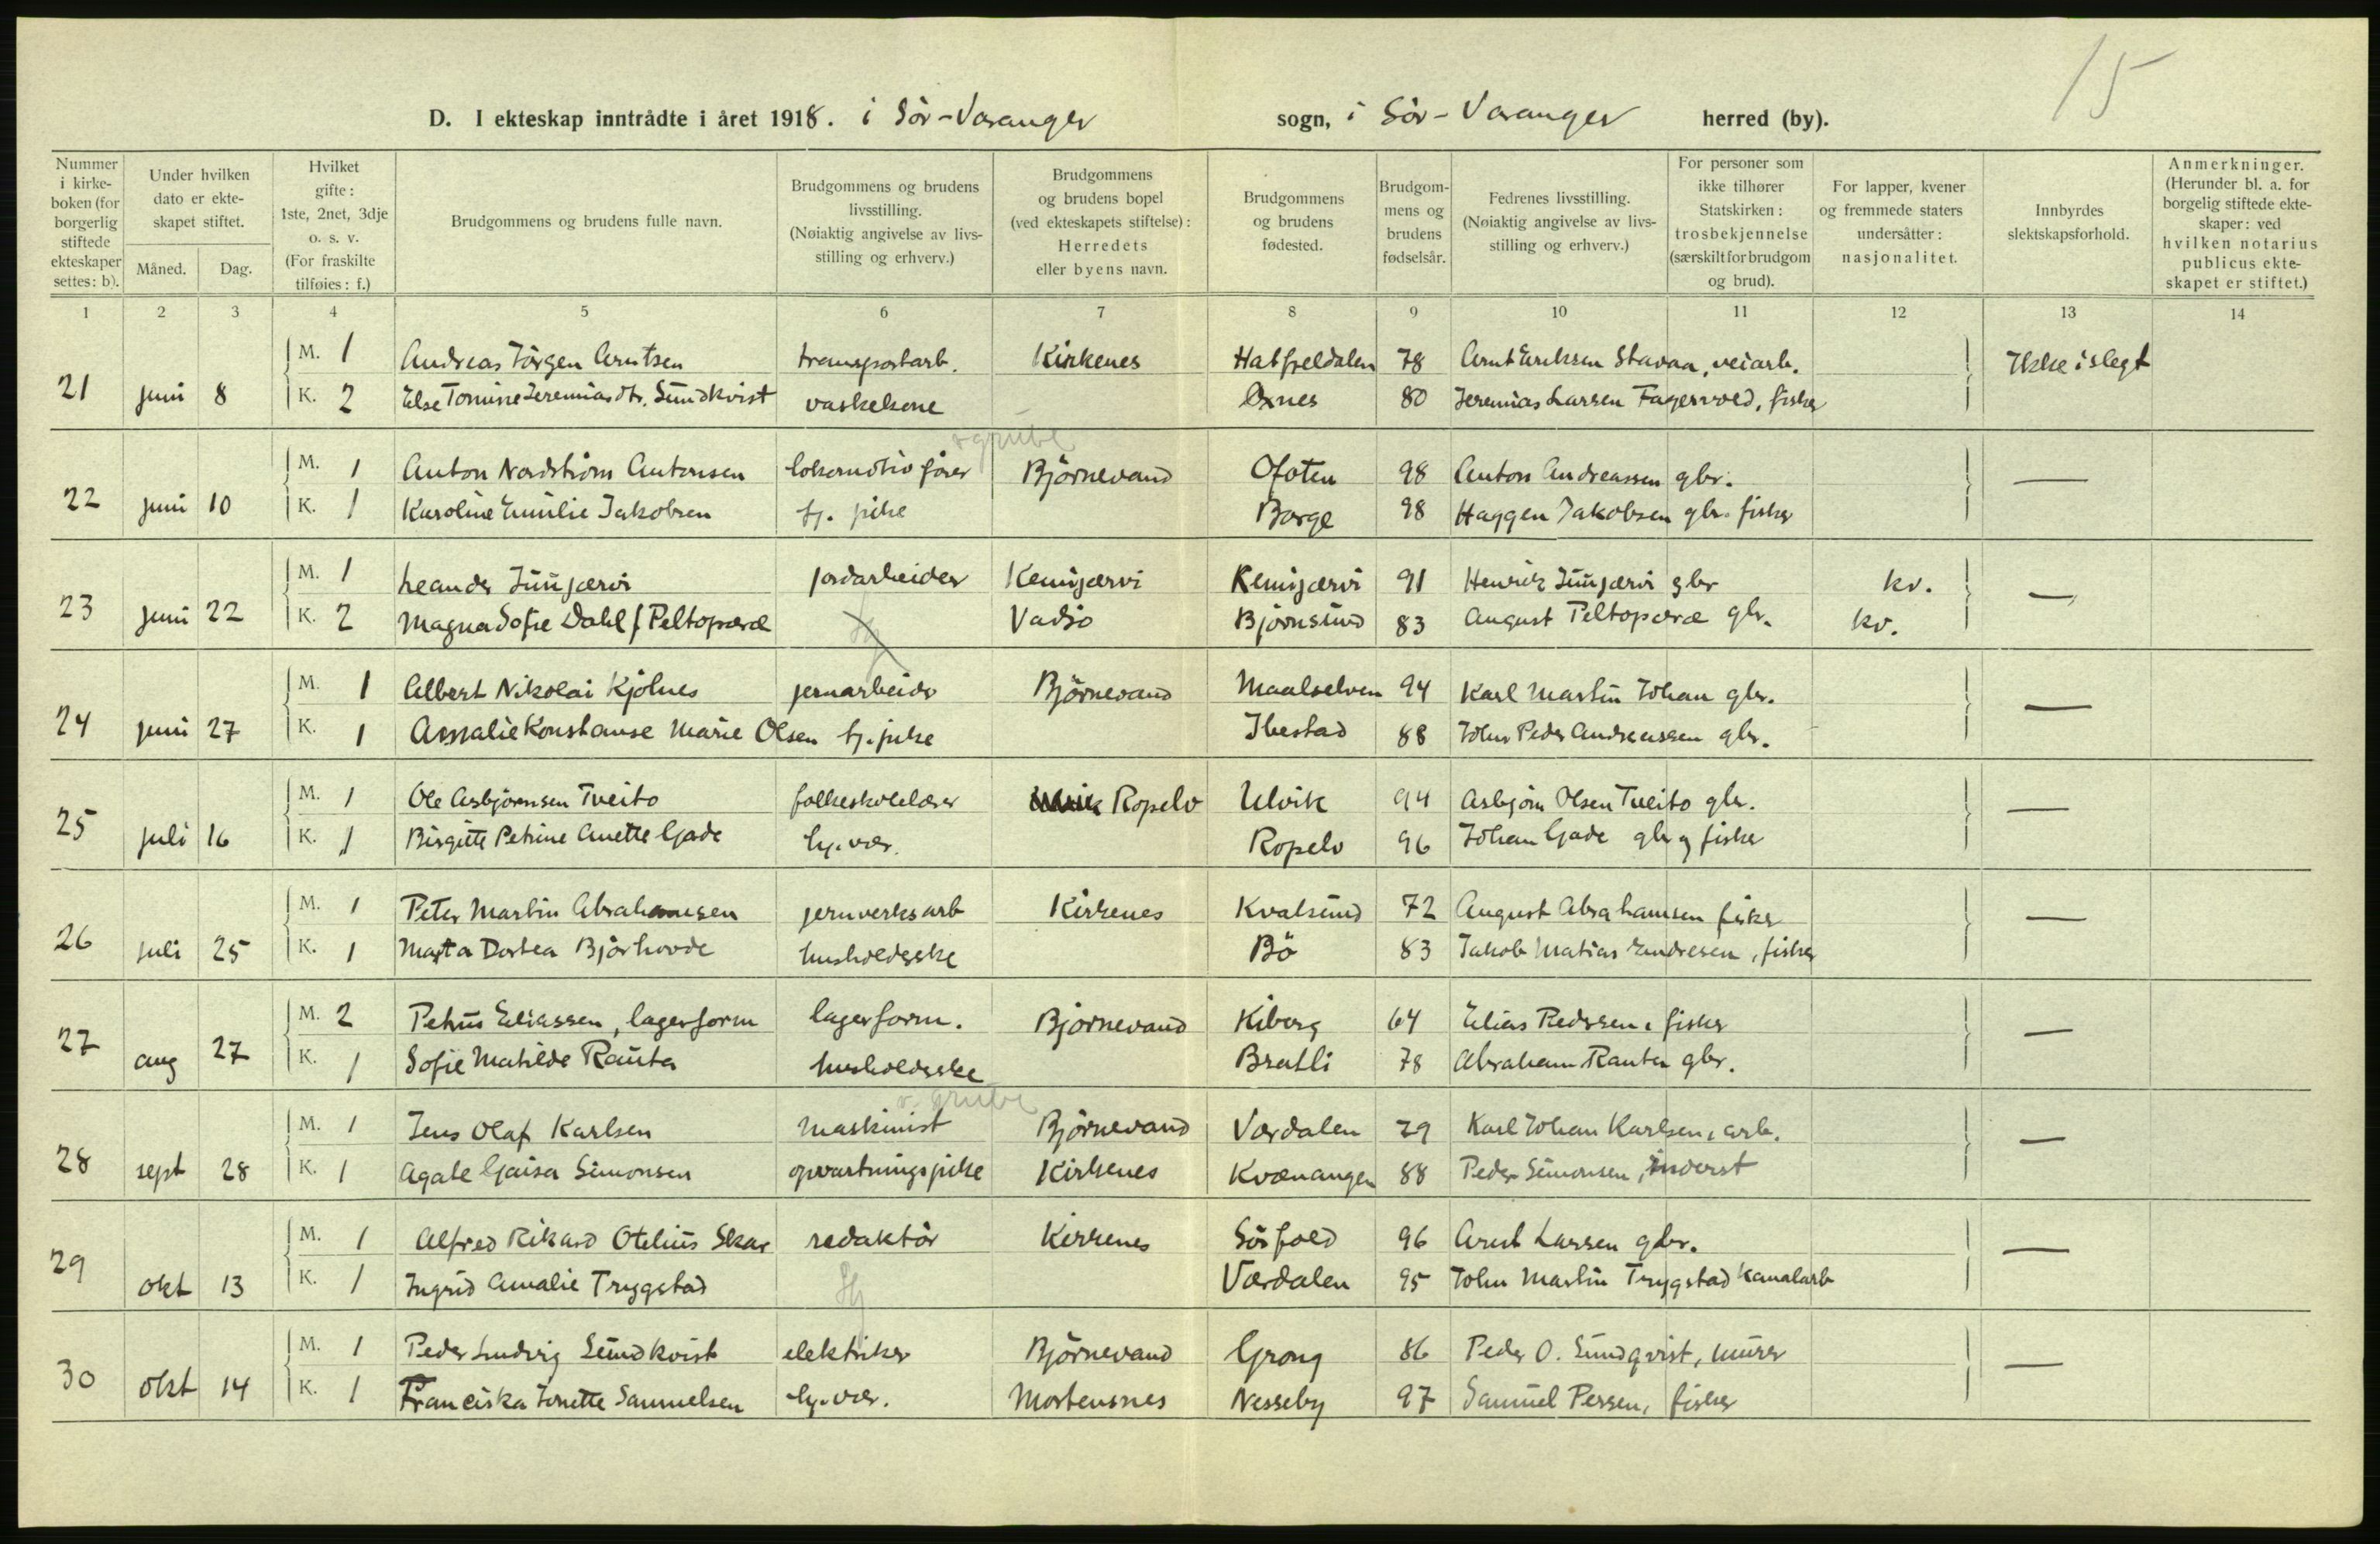 15
D. I ekteskap inntrådte i året 1918. i Sör-Varanger sogn, i Sör-Varanger herred (by).
Nummer i kirkeboken (for borgerlig stiftede ekteskaper settes: b).
Under hvilken dato er ekteskapet stiftet.
Måned. Dag.
Hvilket gifte: 1ste, 2net, 3dje o. s. v. (For fraskilte tilføies: f.)
Brudgommens og brudens fulle navn.
Brudgommens og brudens livsstilling. (Nøiaktig angivelse av livsstilling og erhverv.)
Brudgommens og brudens bopel (ved ekteskapets stiftelse): Herredets eller byens navn.
Brudgommens og brudens fødested.
Brudgommens og brudens fødselsår.
Fedrenes livsstilling. (Nøiaktig angivelse av livsstilling og erhverv.)
For personer som ikke tilhører Statskirken: trosbekjennelse (særskilt for brudgom og brud).
For lapper, kvener og fremmede staters undersåtter: nasjonalitet.
Innbyrdes slektskapsforhold.
Anmerkninger. (Herunder bl. a. for borgelig stiftede ekteskaper: ved hvilken notarius publicus ekteskapet er stiftet.)
1 2 3 4 5 6 7 8 9 10 11 12 13 14
M. 1 Andreas Jörgen Arntsen transportarb. Kirkenes Hatfjeldalen 78 Arnt Eriksen Stavaa, veiarb. Ikke i slegt
21 juni 8 K. 2 Else Tomine Jeremiasdtr. Sundkvist vaskekone Öxnes 80 Jeremias Larsen Fagervold, fisker
v grube
M. 1 Anton Nordström Antonsen lokomotiv förer Björnevand Ofoten 98 Anton Andreassen gbr. —
22 juni 10 K. 1 Karoline Emilie Jakobsen tj. pike Borge 98 Haggen Jakobsen gbr. fisker
M. 1 Leander Juujærvi jordarbeider Kemijærvi Kemijærvi 91 Henrik Juujærvi gbr kv. —
23 juni 22 K. 2 Magna Sofie Dahl f Peltoperæ Vadsö Björnsund 83 August Peltoperæ gbr. kv.
M. 1 Albert Nikolai Kjölnes jernarbeider Björnevand Maalselven 94 Karl Martin Johan gbr. —
24 juni 27 K. 1 Amalie Konstanse Marie Olsen tj. pike Ibestad 88 John Peder Andreassen gbr.
M. 1 Ole Asbjörnsen Tveito folkeskolelærer Ropelv Ulvik 94 Asbjörn Olsen Tveito gbr. —
25 juli 16 K. 1 Birgitte Petrine Anette Gade hj. vær. Ropelv 96 Johan Gade gbr og fisker
M. 1 Peter Martin Abrahamsen jernverksarb Kirkenes Kvalsund 72 August Abrahamsen fisker —
26 juli 25 K. 1 Marta Dortea Bjørhovde husholderske Bö 83 Jakob Matias Endresen, fisker
M. 2 Petrus Eliassen, lagerform lagerform. Björnevand Kiberg 64 Elias Pedersen, fisker —
27 aug 27 K. 1 Sofie Matilde Rauta husholderske Bratli 78 Abraham Rauta gbr.
v. grube
M. 1 Jens Olaf Karlsen maskinist Björnevand Værdalen 79 Karl Johan Karlsen, arb. —
28 sept 28 K. 1 Agate Gaisa Simonsen opvartningspike Kirkenes Kvænangen 88 Peder Simonsen, inderst
M. 1 Alfred Rikard Otelius Skar redaktör Kirkenes Sörfold 96 Arnt Larsen gbr. —
29 okt 13 K. 1 Ingrid Amalie Trygstad Hj Værdalen 95 John Martin Trygstad kanalarb
M. 1 Peder Ludvig Sundkvist elektriker Björnevand Grong 86 Peder O. Sundqvist, murer —
30 okt 14 K. 1 Franciska Jonette Samuelsen hj. vær. Mortensnes Nesseby 97 Samuel Persen, fisker